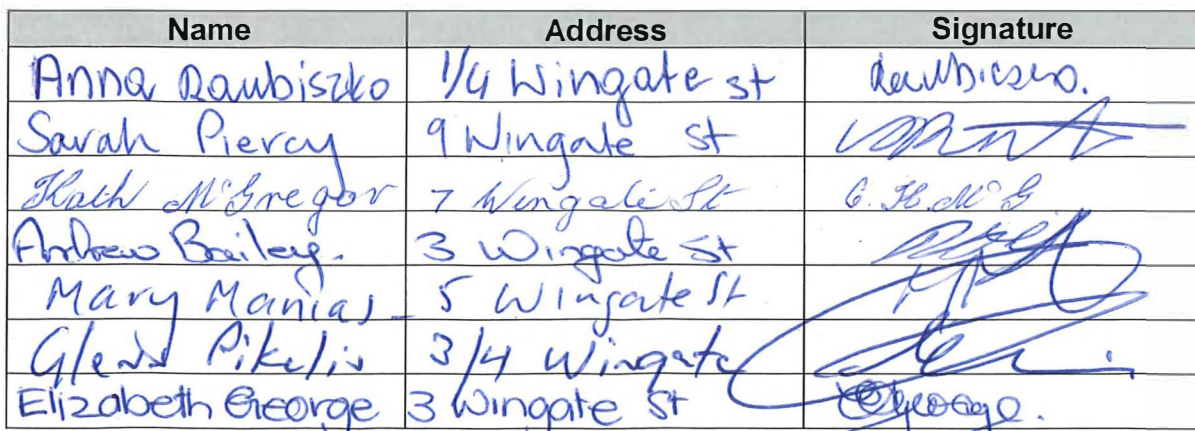 Name Address Signature
Anna Raubiszko 1/4 Wingate st Raubiszko.
Sarah Piercy 9 Wingate St
Kath McGregor 7 Wingate St C. K. McG
Andrew Bailey. 3 Wingate St
Mary Manias 5 Wingate St
Glenn Pikelis 3/4 Wingate
Elizabeth George 3 Wingate St EGeorge.